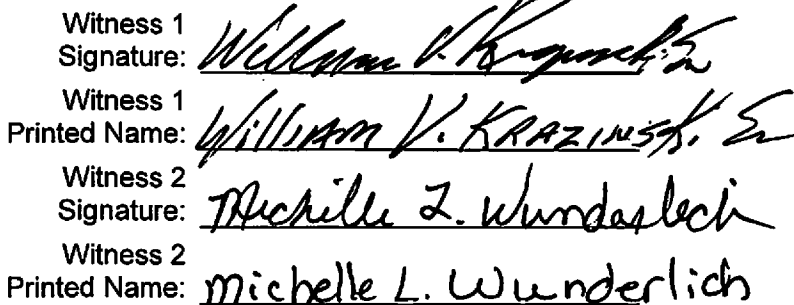 Witness 1
Signature: William V. Krazinski, Sr
Witness 1
Printed Name: William V. KRAZINSKI, Sr
Witness 2
Signature: Michelle L. Wunderlich
Witness 2
Printed Name: Michelle L. Wunderlich